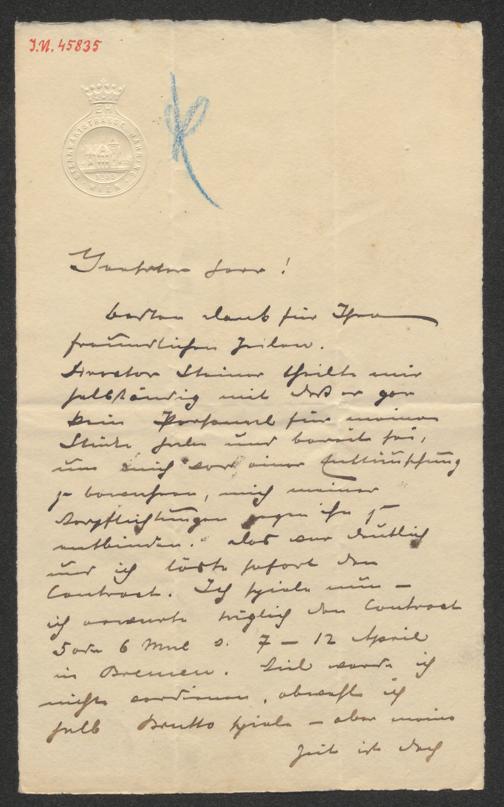 I.N. 45835
WIEN
Geehrter Herr!
besten Dank für Ihre
freundlichen Zeilen.
Director Steiner theilte mir
selbständig mit daß er gar
kein Personal für meine
Stücke habe und bereit sei,
um mich vor einer Enttäuschung
zu bewahren, mich meiner
Verpflichtungen gegen ihn zu
entbinden. Das war deutlich
und ich löste sofort den
Contract. Ich spiele nun –
ich erwarte täglich den Contract
5 oder 6 Mal v. 7 – 12 April
in Bremen. Viel werde ich
nicht verdienen, obwohl ich
halb Brutto spiele – aber meine
Zeit ist doch